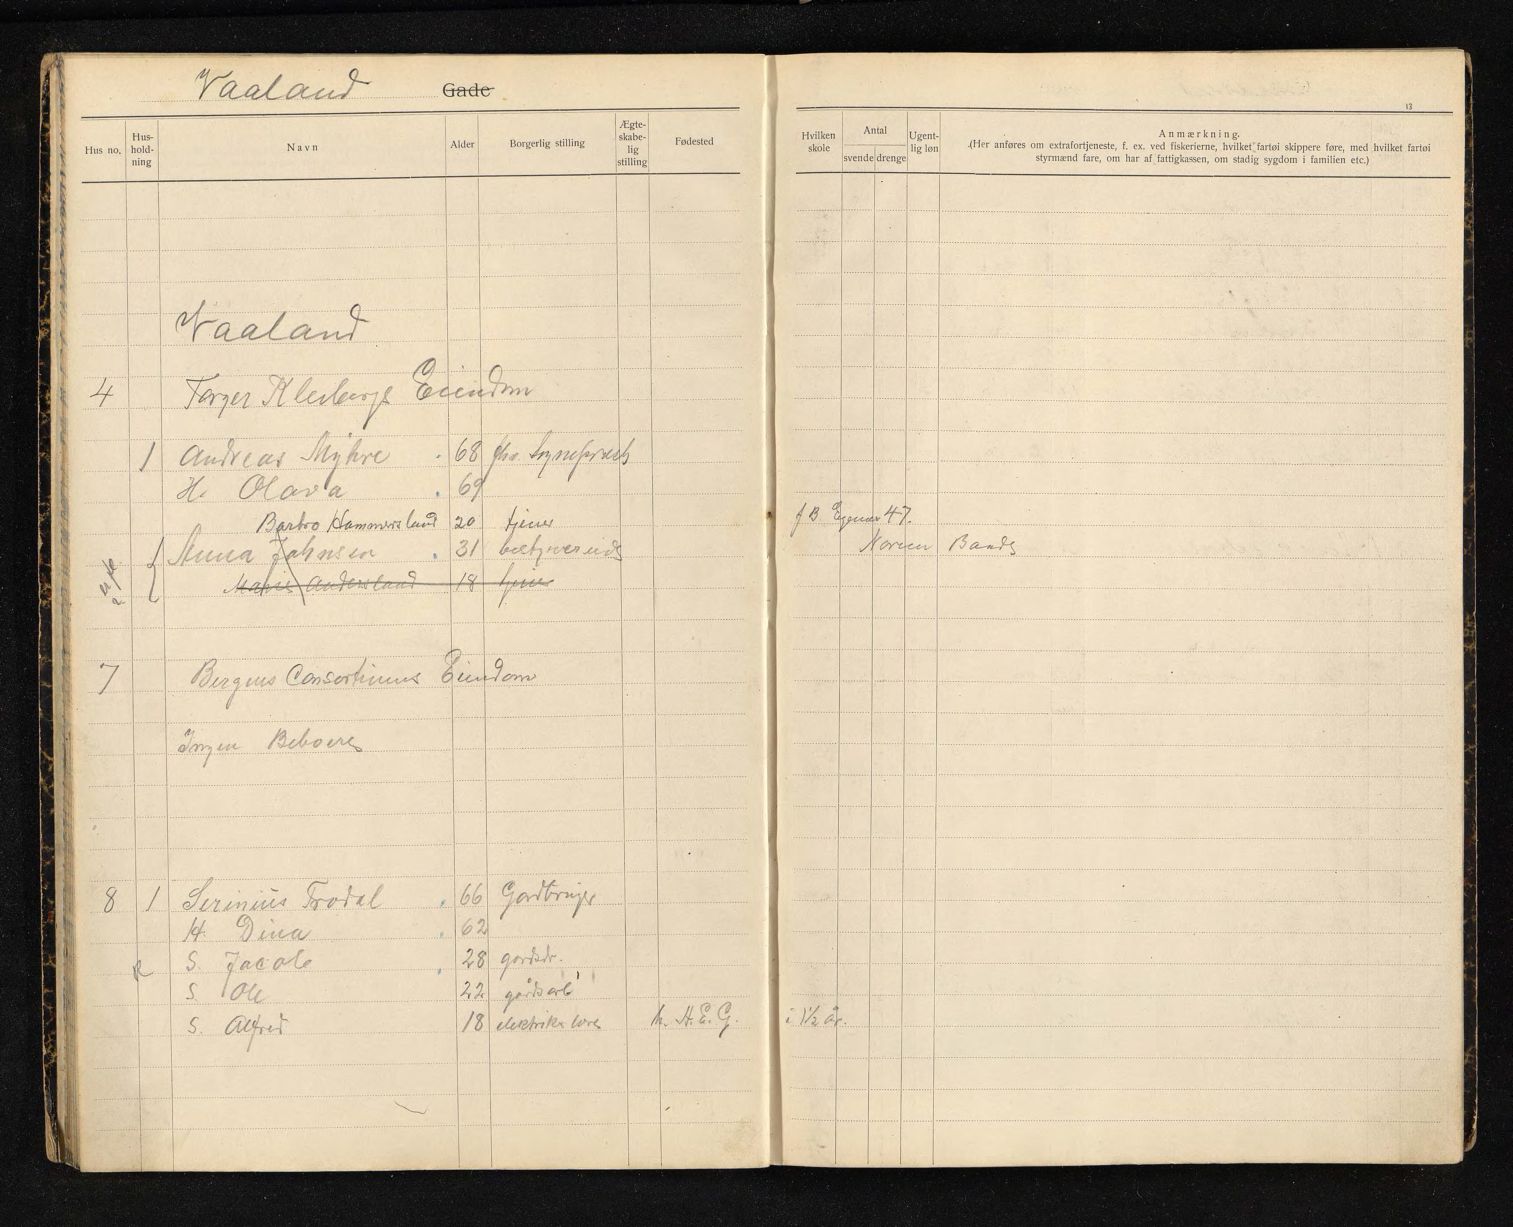 Vaaland Gade
13
Hus no. Hus-hold-ning Navn Alder Borgerlig stilling Ægte-skabe-lig stilling Fødested Hvilken skole Antal svende drenge Ugent-lig løn Anmærkning.
(Her anføres om extrafortjeneste, f. ex. ved fiskerierne, hvilket fartøi skippere føre, med hvilket fartøi
styrmænd fare, om har af fattigkassen, om stadig sygdom i familien etc.)
Vaaland
4 Torger Eiendom
1 Andreas Myhre 68
H. Olava 69
Barbro Hammersland 20 tjener f B 47.
Anna Johnsen 31
Andersland 18 tjener
7 Bergens Consortiums Eiendom
Ingen Beboere
8 1 Serinius Frodal 66 Gardbruger
H. Dina 62
S. Jacob 28 gardsdr.
S. Ole 22 gårdsarb
S. Alfred 18 h. H. E. G. i 1 1/2 år.